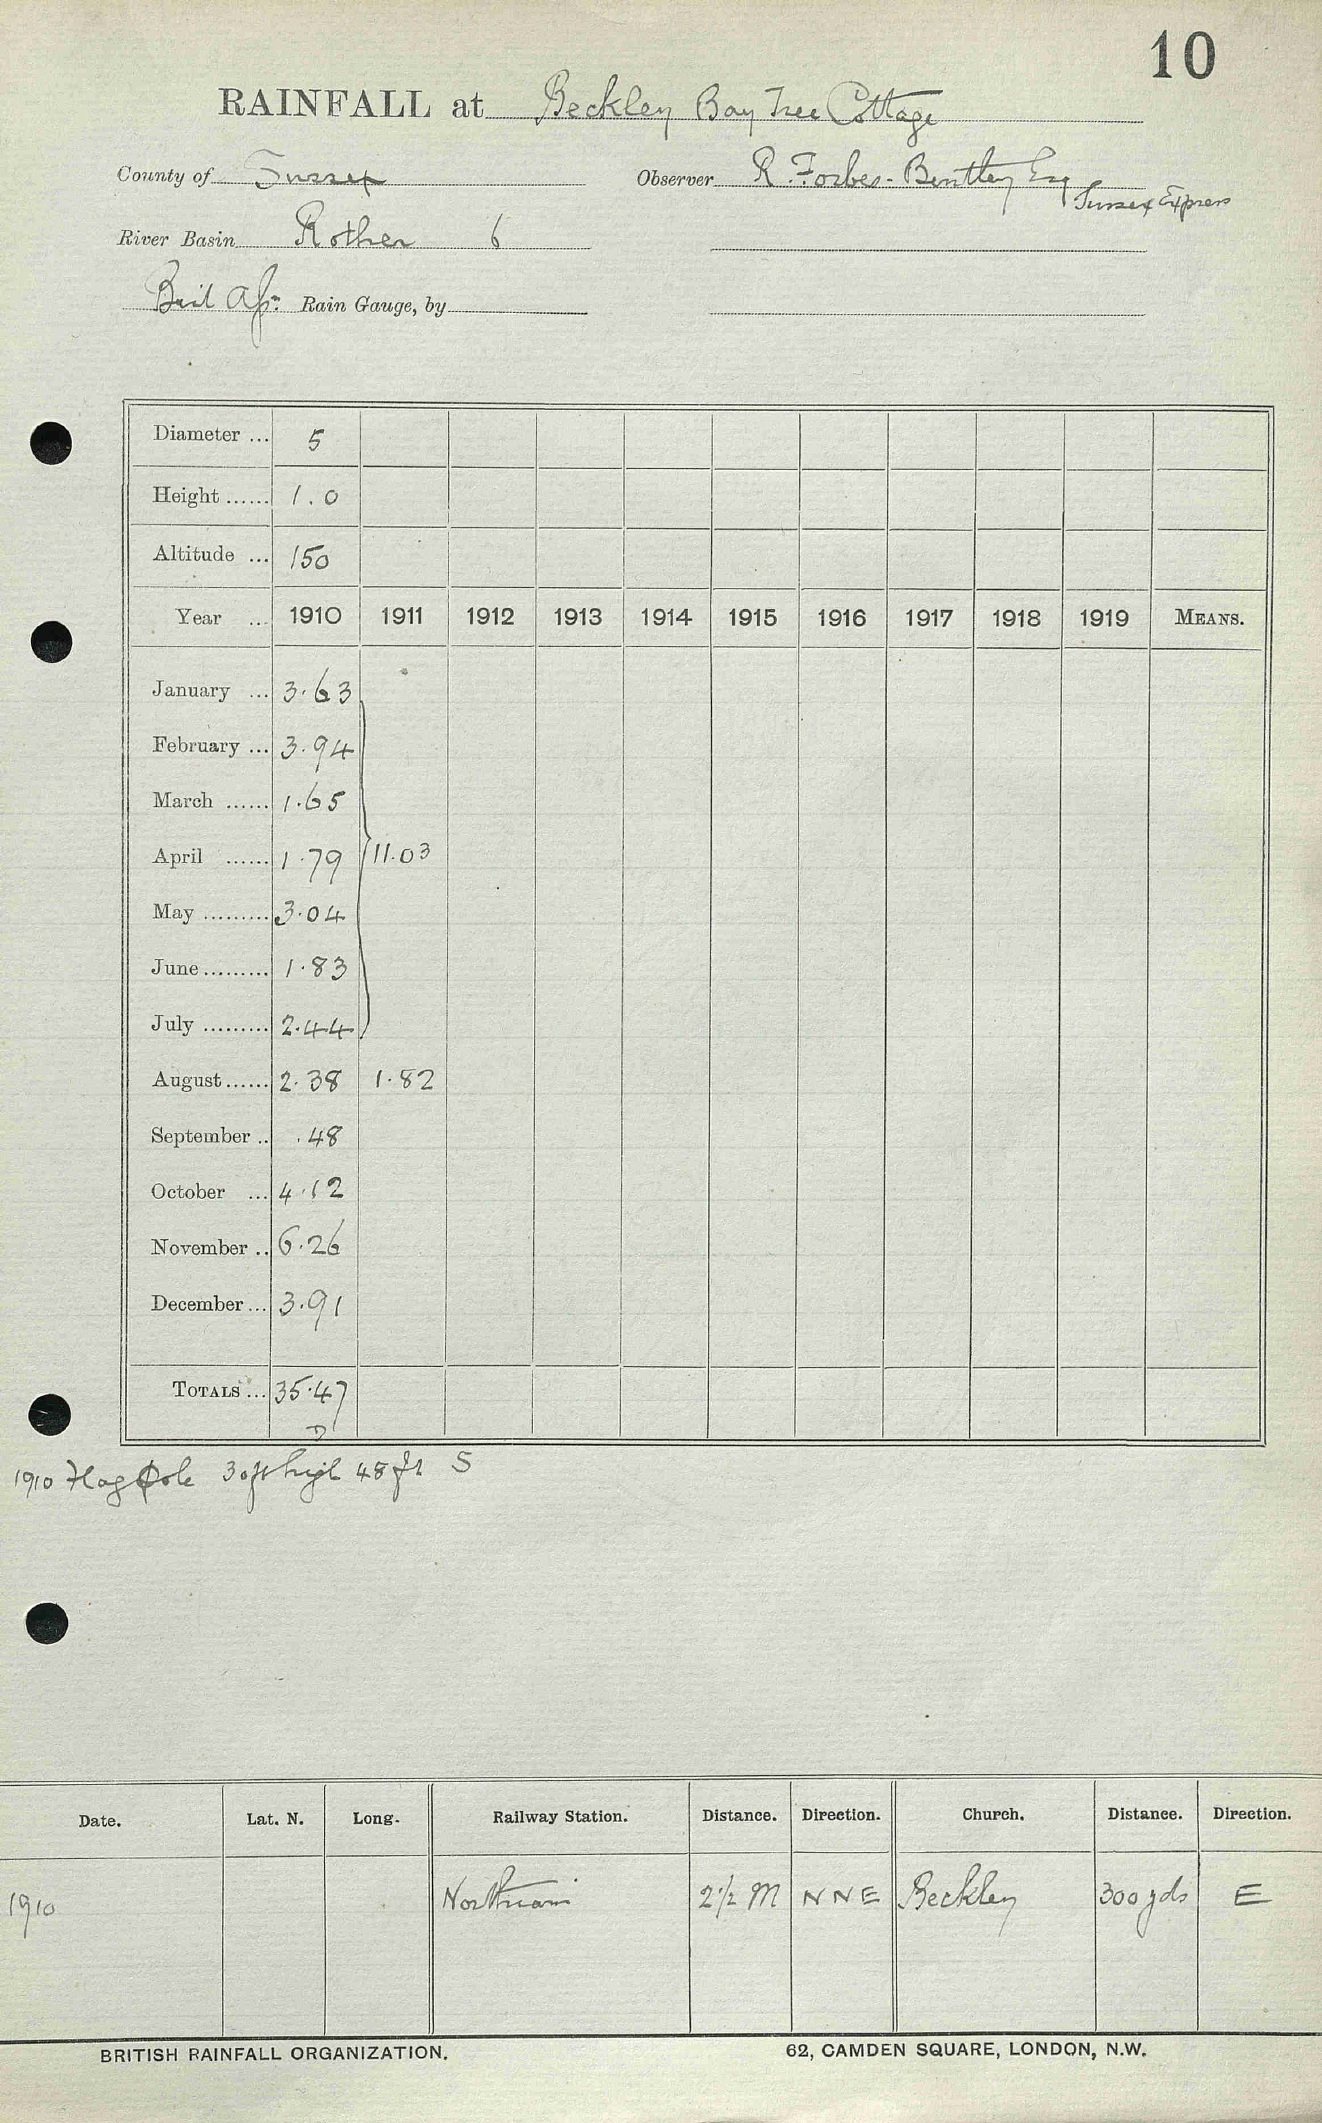 10
RAINFALL at Beckley Bay Tree Cottage
County of Sussex Observer R. Forbes-Bentley Esq
Sussex Express
River Basin Rother 6
Rain Gauge, by
Diameter ... 5
Height ...... 1.0
Altitude ... 150
Year ... 1910 1911 1912 1913 1914 1915 1916 1917 1918 1919 MEANS.
January ... 3.63
February ... 3.94
March ...... 1.65
April ...... 1.79 11.03
May ......... 3.04
June ......... 1.83
July ......... 2.44
August ...... 2.38 1.82
September .. .48
October ... 4.12
November .. 6.26
December ... 3.91
TOTALS ... 35.47
D
1910 Flag Pole 30ft high 48 ft S
Date. Lat. N. Long. Railway Station. Distance. Direction. Church. Distance. Direction.
1910 Northiam 2½ M NNE Beckley 300 yds E
BRITISH RAINFALL ORGANIZATION. 62, CAMDEN SQUARE, LONDON, N.W.